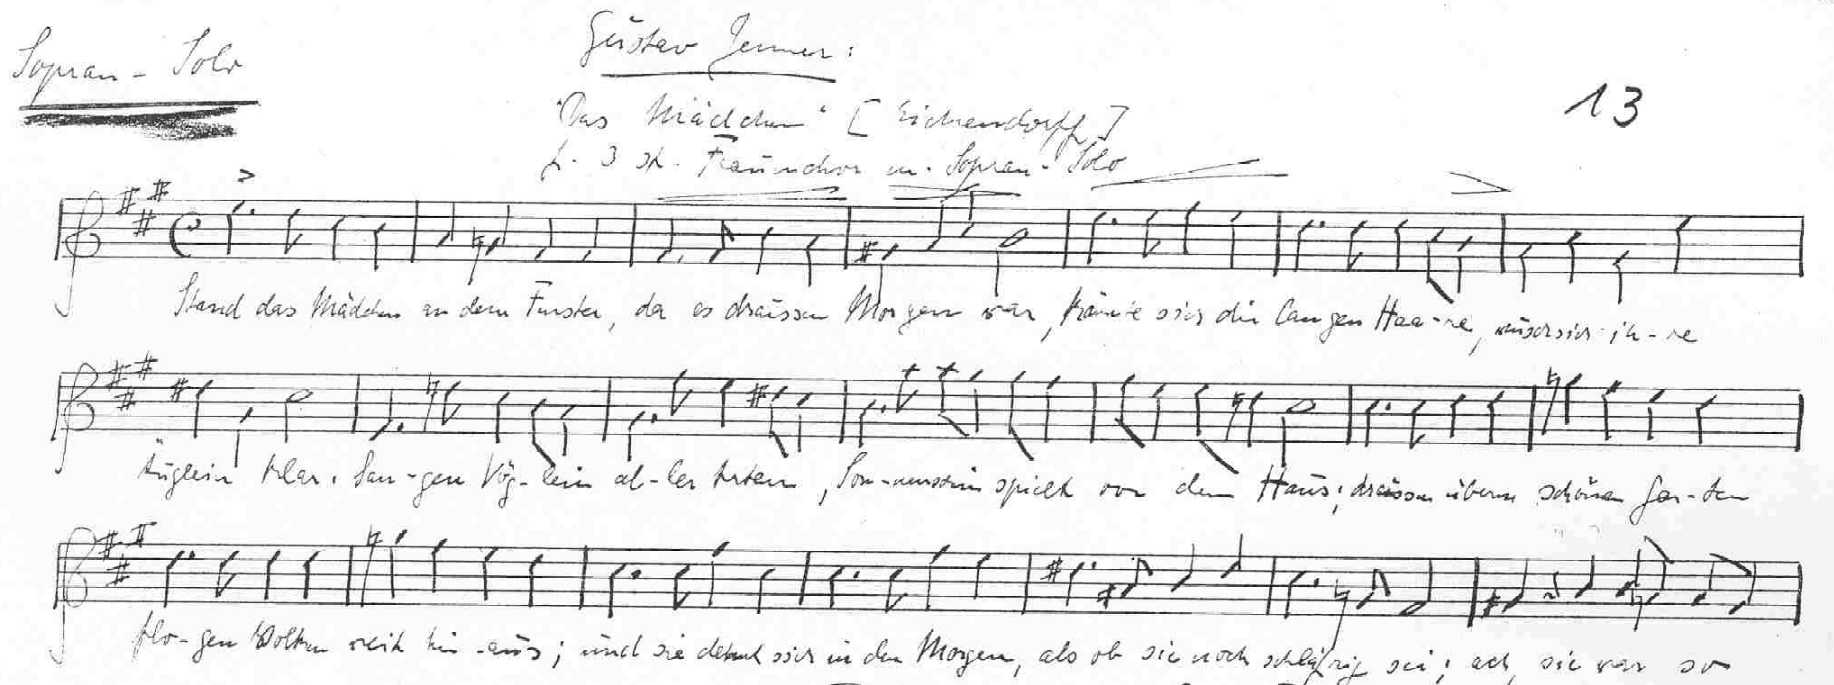 Sopran - Solo
Gustav Jenner:
13
"Das Mädchen" [Eichendorff]
f. 3 st. Frauenchor m. Sopran-Solo
Stand das Mädchen an dem Fenster, da es draussen Morgen war, kämmte sich die langen Haa-re, wusch sich ih-re
Äuglein klar. San-gen Vög-lein al-ler Arten, Son-nenschein spielt vor dem Haus; draussen überm schönen Gar-ten
flo-gen Wolken weit hin-aus; und sie dehnt sich in den Morgen, als ob sie noch schläfrig sei; ach, sie war so